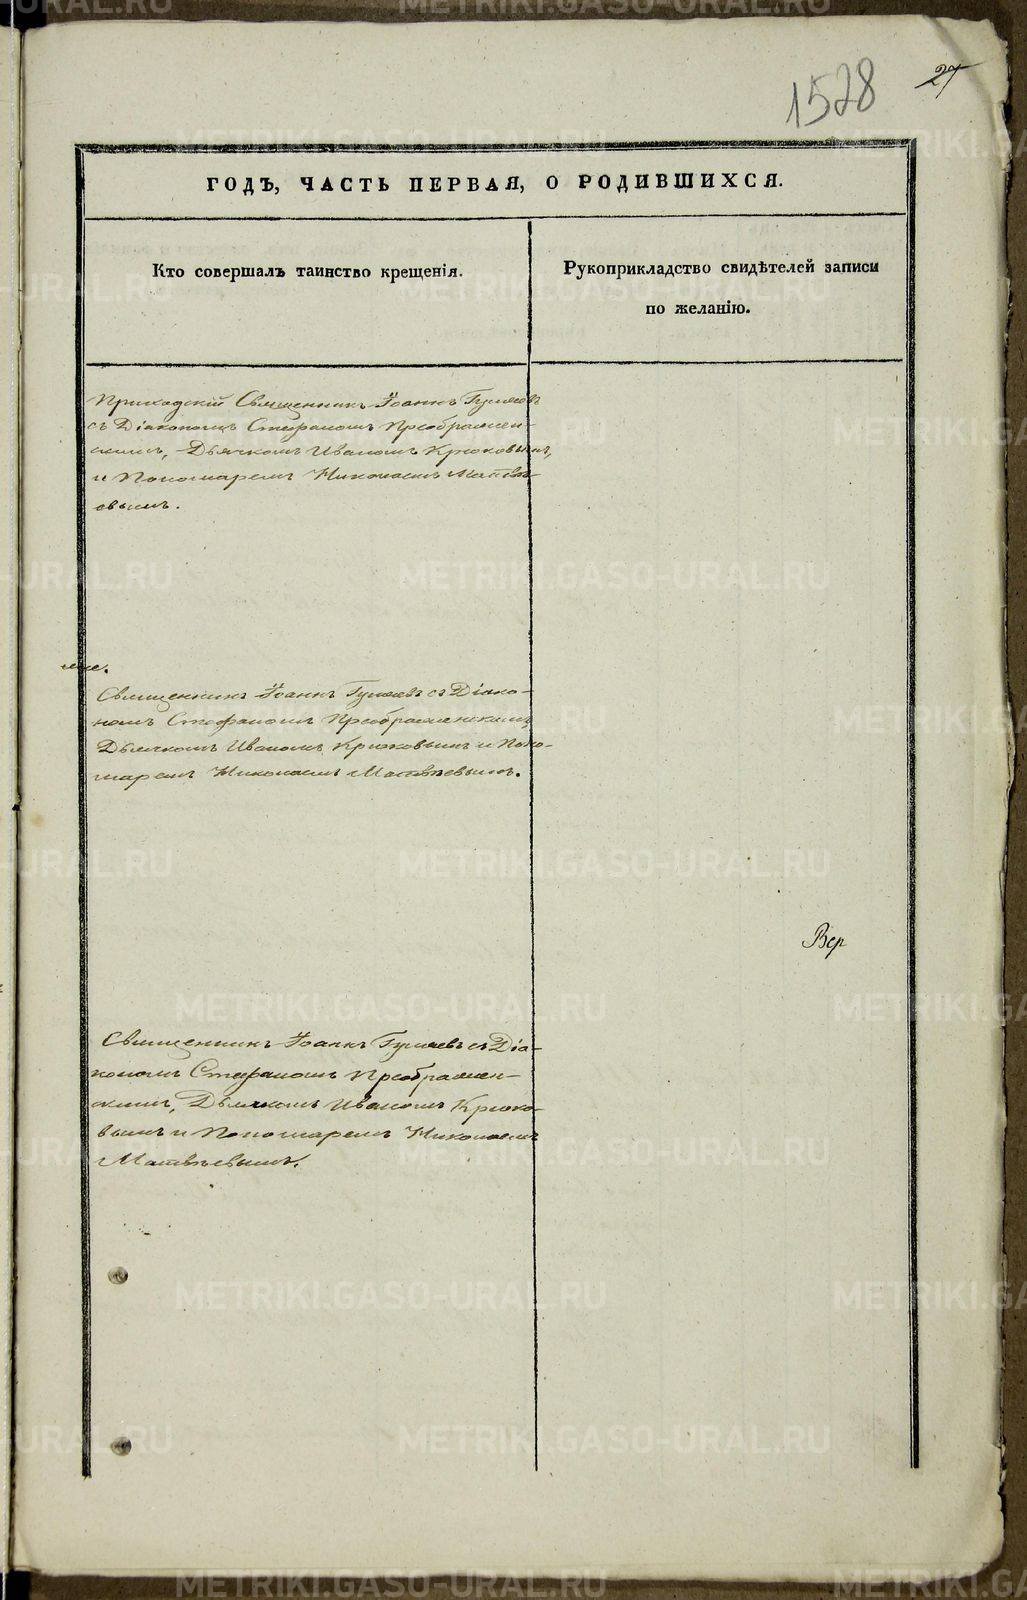 1528
27
ГОДЪ, ЧАСТЬ ПЕРВАЯ, О РОДИВШИХСЯ.
Кто совершалъ таинство крещенія.
Рукоприкладство свидѣтелей записи
по желанію.
Приходскій Священникъ Іоаннъ
съ Діакономъ Стефаномъ Преображен-
скимъ, Дьячкомъ Иваномъ Крюковымъ,
и Пономаремъ Николаемъ Матвѣ-
евымъ.
Священникъ Іоаннъ съ Діако-
номъ Стефаномъ Преображенскимъ
Дьячкомъ Иваномъ Крюковымъ и Поно-
маремъ Николаемъ Матвѣевымъ.
Вер
Священникъ Іоаннъ съ Діа-
кономъ Стефаномъ Преображен-
скимъ, Дьячкомъ Иваномъ Крюко-
вымъ и Пономаремъ Николаемъ
Матвѣевымъ.
METRIKI.GASO-URAL.RU